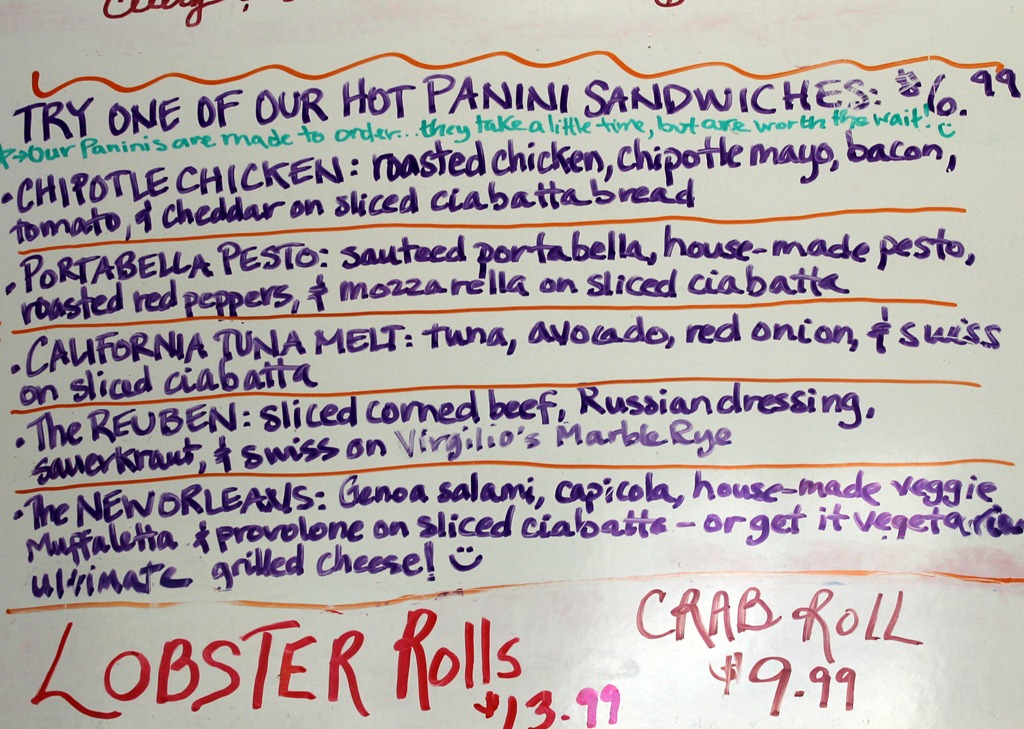 TRY ONE OF OUR HOT PANINI SANDWICHES: $6.99
*→Our Paninis are made to order... they take a little time, but are worth the wait! :)
• CHIPOTLE CHICKEN: roasted chicken, chipotle mayo, bacon,
tomato, & cheddar on sliced ciabatta bread
• PORTABELLA PESTO: sauteed portabella, house-made pesto,
roasted red peppers, & mozzarella on sliced ciabatta
• CALIFORNIA TUNA MELT: tuna, avocado, red onion, & swiss
on sliced ciabatta
• The REUBEN: sliced corned beef, Russian dressing,
sauerkraut, & swiss on Virgilio's Marble Rye
• The NEW ORLEANS: Genoa salami, capicola, house-made veggie
Muffaletta & provolone on sliced ciabatta - or get it vegetarian
ultimate grilled cheese! :)
LOBSTER Rolls
$13.99
CRAB ROLL
$9.99